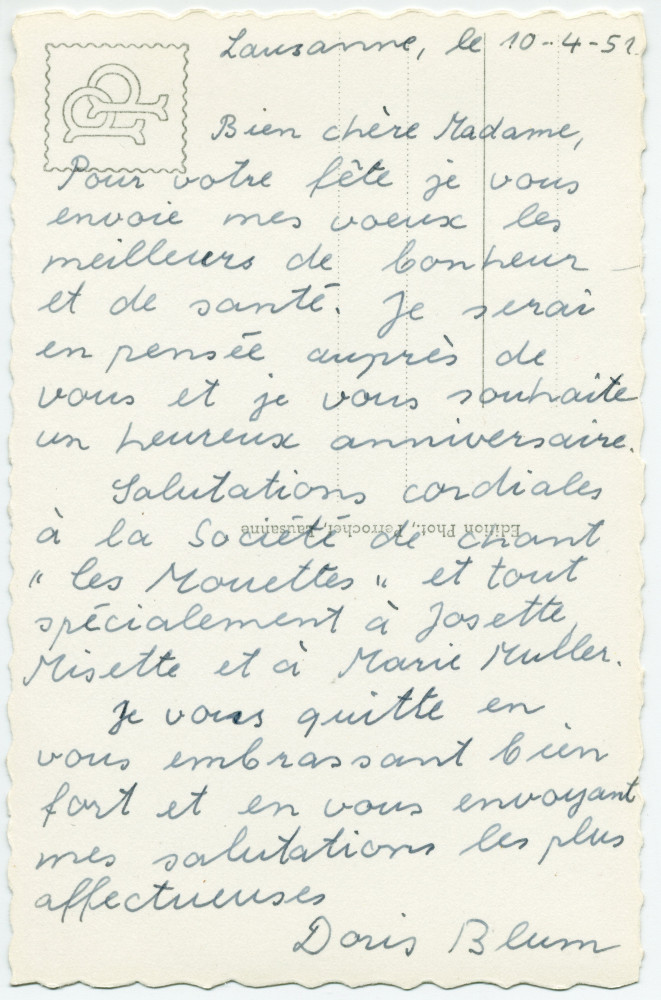 Lausanne, le 10-4-51
Bien chère Madame,
Pour votre fête je vous
envoie mes voeux les
meilleurs de bonheur
et de santé. Je serai
en pensée auprès de
vous et je vous souhaite
un heureux anniversaire.
Salutations cordiales
à la Société de chant
"les Mouettes" et tout
spécialement à Josette,
Misette et à Marie Muller.
Je vous quitte en
vous embrassant bien
fort et en vous envoyant
mes salutations les plus
affectueuses
Doris Blum
Edition Phot. Perrochet, Lausanne